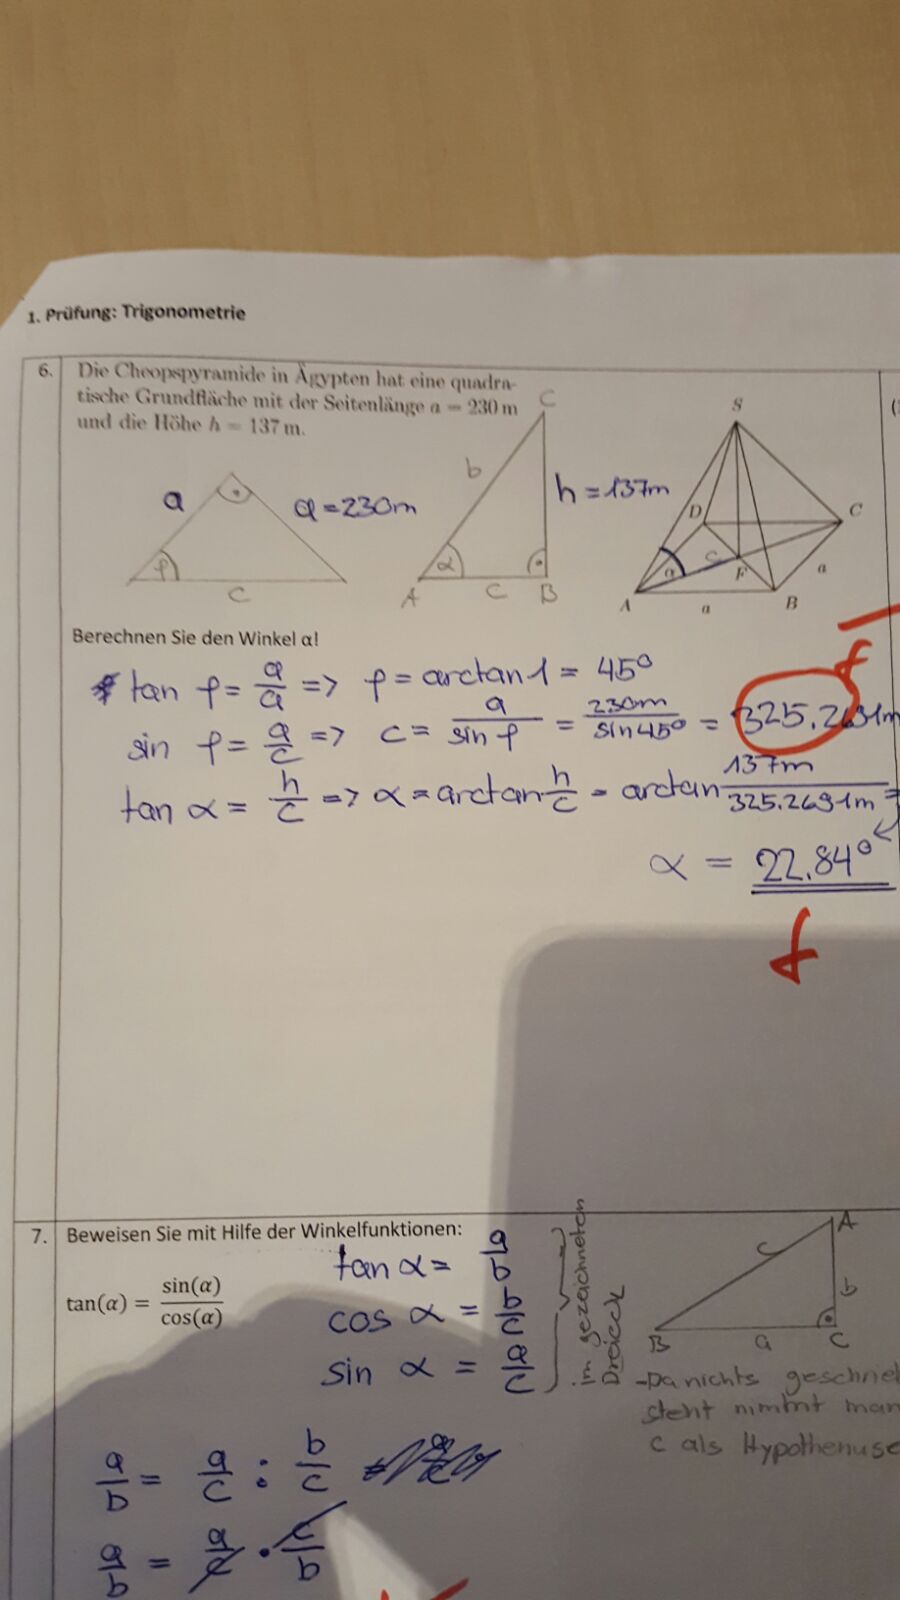 1. Prüfung: Trigonometrie
6. Die Cheopspyramide in Ägypten hat eine quadra-
tische Grundfläche mit der Seitenlänge a = 230 m
und die Höhe h = 137 m.
a a = 230m φ c
C b h = 137m α A c B
S D C c α F a A a B
Berechnen Sie den Winkel α!
tan φ = a/a => φ = arctan 1 = 45°
sin φ = a/c => c = a/sin φ = 230m/sin 45° = 325.2691m
f
tan α = h/c => α = arctan h/c = arctan 137m/325.2691m =
α = 22.84°
f
7. Beweisen Sie mit Hilfe der Winkelfunktionen:
tan(α) = sin(α)/cos(α)
tan α = a/b
cos α = b/c
sin α = a/c
im gezeichneten
Dreieck
A c b B a C
- Da nichts
steht nimmt man
c als Hypothenuse
a/b = a/c : b/c
a/b = a/c · c/b